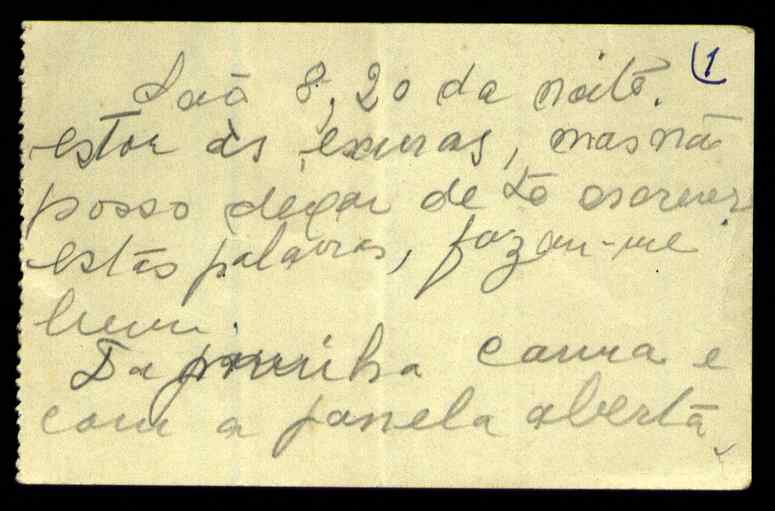 1
São 8,20 da noite.
estou às escuras, mas não
posso deixar de te escrever
estas palavras, fazem-me
bem.
Da minha cama e
com a janela aberta,